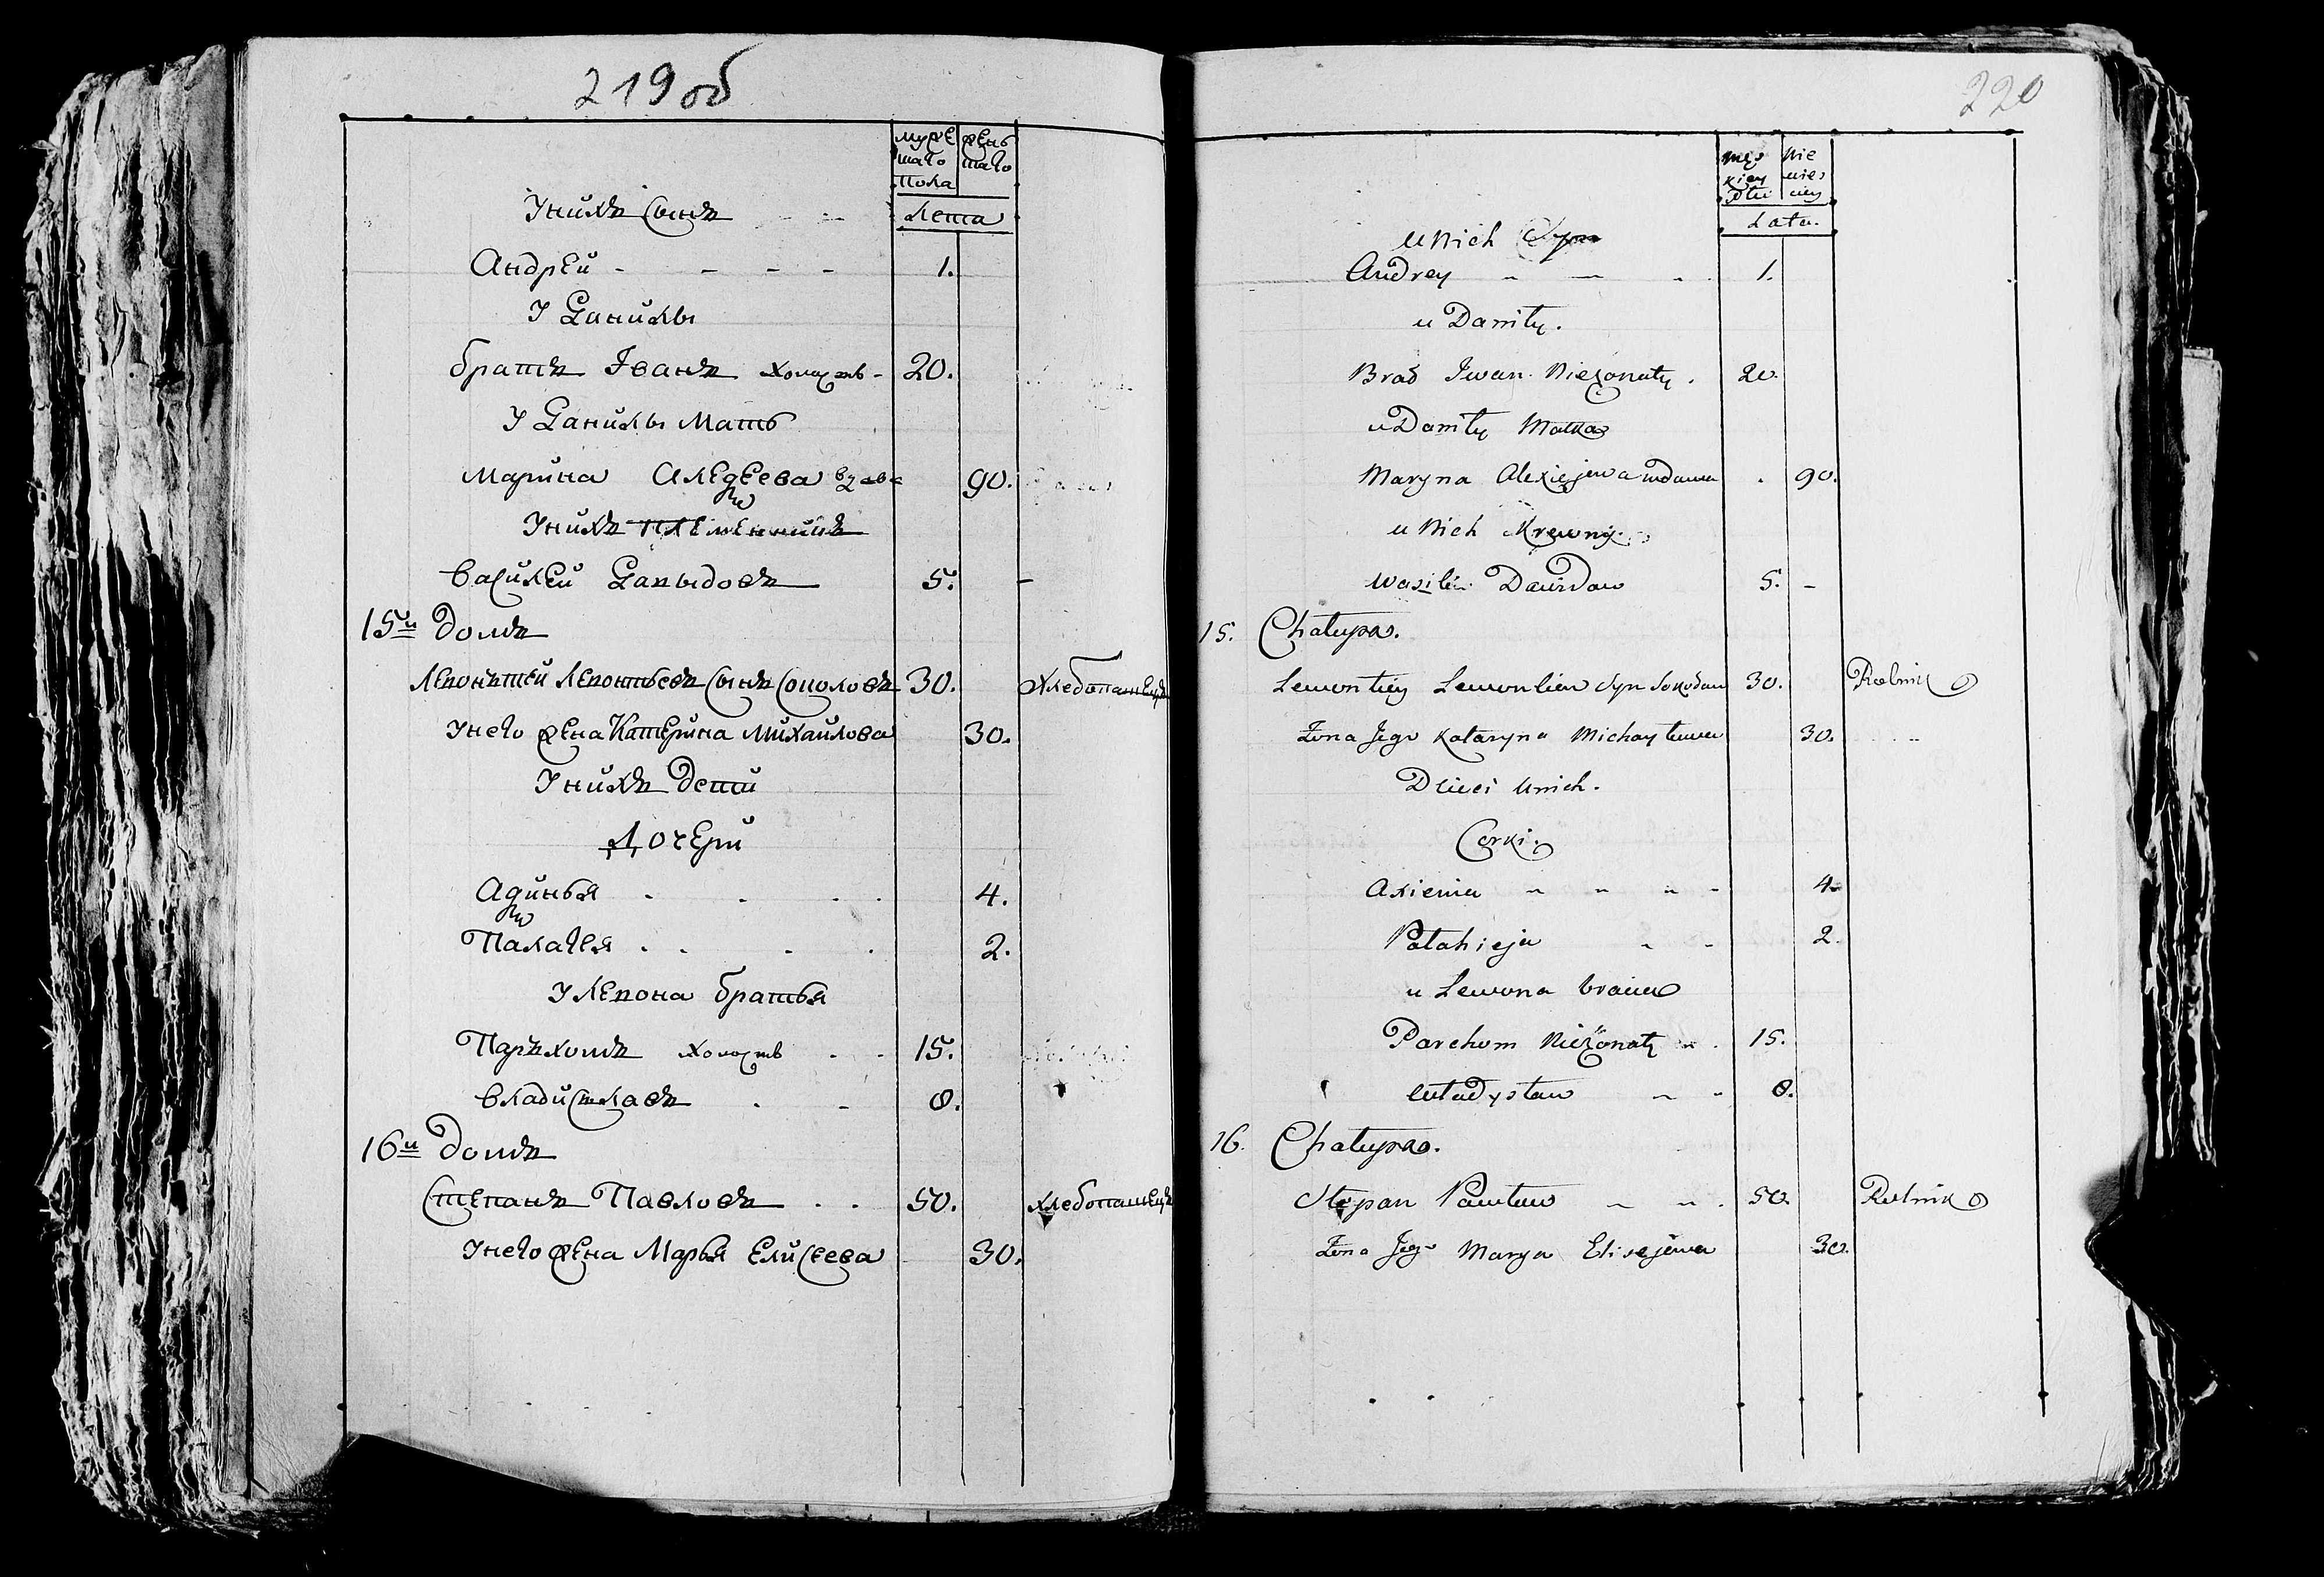 219об
муже женъ
скаго скаго
пола
Лета
У нихъ Сынъ
Андрей - - - - 1.
У Данилы
братъ Іванъ холостъ - 20.
У Данилы Мать
Марина Алеѯеева вдова 90.
У нихъ племенникъ
Василей Давыдовъ 5. -
15й домъ
Левонътей Левонтьевъ Сынъ Соколовъ 30. Хлебопашецъ
У него жена Катерина Михайлова 30.
У нихъ дети
Дочери
Аѯинья . . . . 4.
Палагея . . . . 2.
У Левона братья
Паръхомъ холостъ . . 15.
Владиславъ . - 8.
16й домъ
Степанъ Павловъ . . 50. Хлебопашецъ
У него жена Марья Елисеева 30.
220
męs nie
kiey wies
Płci ciey
Lata.
u Nich Syn
Andrey 1.
u Daniły.
Brad Iwan Nieżonaty . 20.
u Daniły Matka
Maryna Alexiejewa wdawa . 90.
u Nich Krewny.
Wasiley Dawidow 5. -
15. Chałupa.
Lewontiey Lewontiew Syn Sokołow 30. Rolnik
Żona Jego Kataryna Michayłowa 30.
Dzieci u nich.
Corki.
Axienia 4
Pałahieja 2.
u Lewona bracia
Parchom Nieżonaty 15.
Władysław 8.
16. Chałupa.
Stepan Pawłow 50. Rolnik
Żona Jego Marya Elisejewa 30.